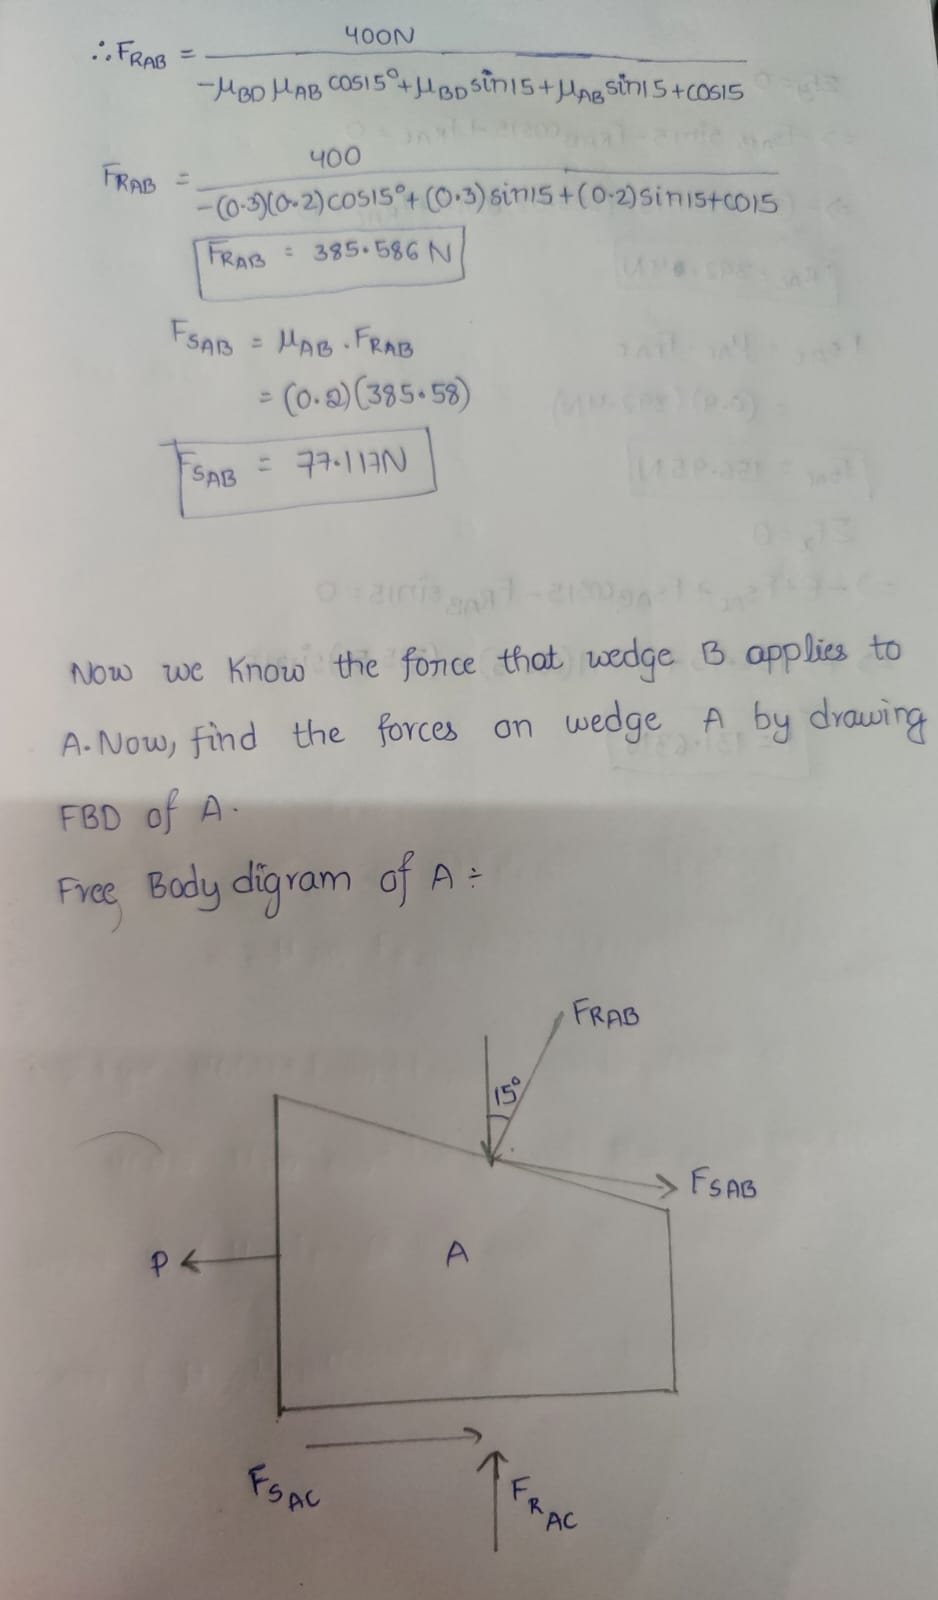 ∴ FRAB = 400N
-μBD μAB cos15° + μBD sin15 + μAB sin15 + cos15
FRAB = 400
-(0.3)(0.2)cos15° + (0.3) sin15 + (0.2) sin15 + co15
FRAB = 385.586 N
FSAB = μAB . FRAB
= (0.2)(385.58)
FSAB = 77.117N
Now we know the force that wedge B applies to
A. Now, find the forces on wedge A by drawing
FBD of A.
Free Body digram of A ÷
FRAB
15°
FSAB
P
A
FSAC
FRAC